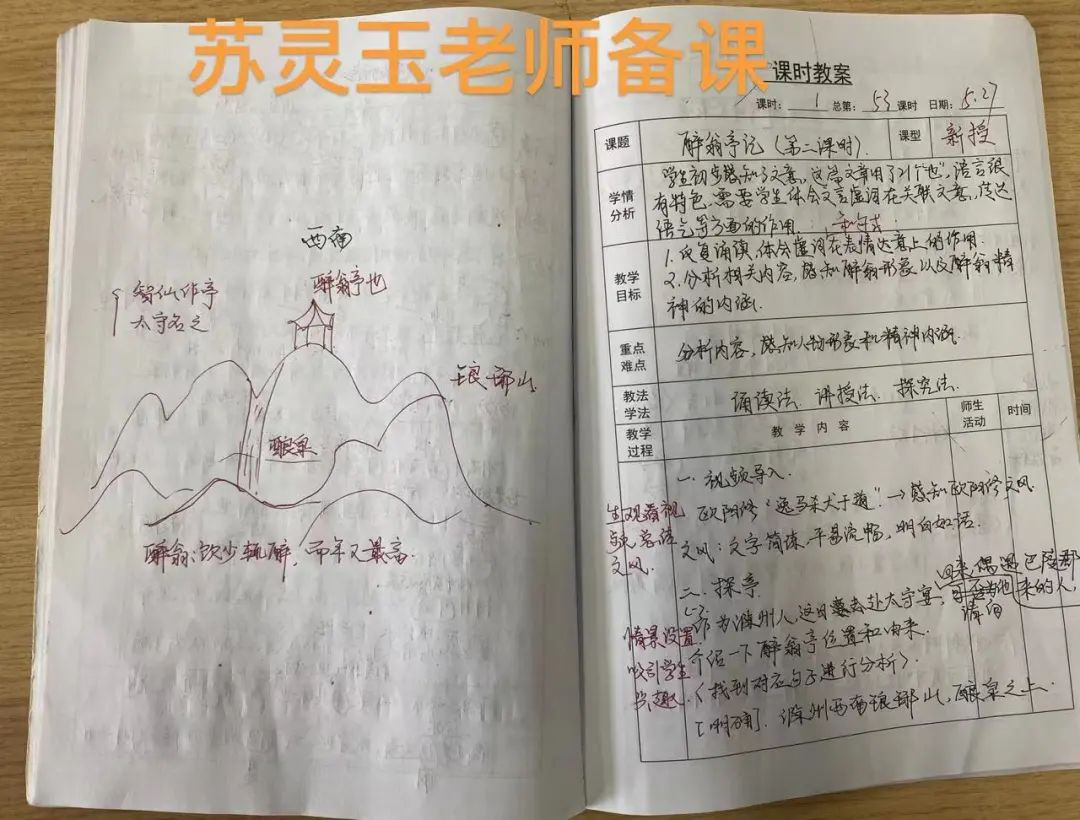 苏灵玉老师备课
西南
醉翁亭也
智仙作亭
太守名之
琅琊山
酿泉
醉翁:饮少辄醉,而年又最高.
课时教案
课时: 1 总第: 53 课时 日期: 5.27
课题 醉翁亭记(第二课时). 课型 新授
学情分析
学生初步感知了文意,这篇文章用了21个"也",语言很
有特色.需要学生体会文言虚词在关联文意,传达
语气等方面的作用.
教学目标
1.反复诵读,体会虚词在表情达意上的作用.
2.分析相关内容,感知醉翁形象以及醉翁精
神的内涵.
重点难点
分析内容,感知人物形象和精神内涵.
教法学法
诵读法.讲授法.探究法.
教学过程 教学内容 师生活动 时间
一.视频导入.
生观看视
欧阳修"逸马杀犬于道"→感知欧阳修文风.
文风:文字简练.平易流畅,明白如话.
文风.
二.探亭
回来偶遇巴陵郡
来的人,
作为滁州人,这日去赴太守宴,
请向
情景设置,
介绍一下醉翁亭位置和由来.
吸引学生
兴趣.
(找到对应句子进行分析).
[明确]滁州西南琅琊山,酿泉之上.